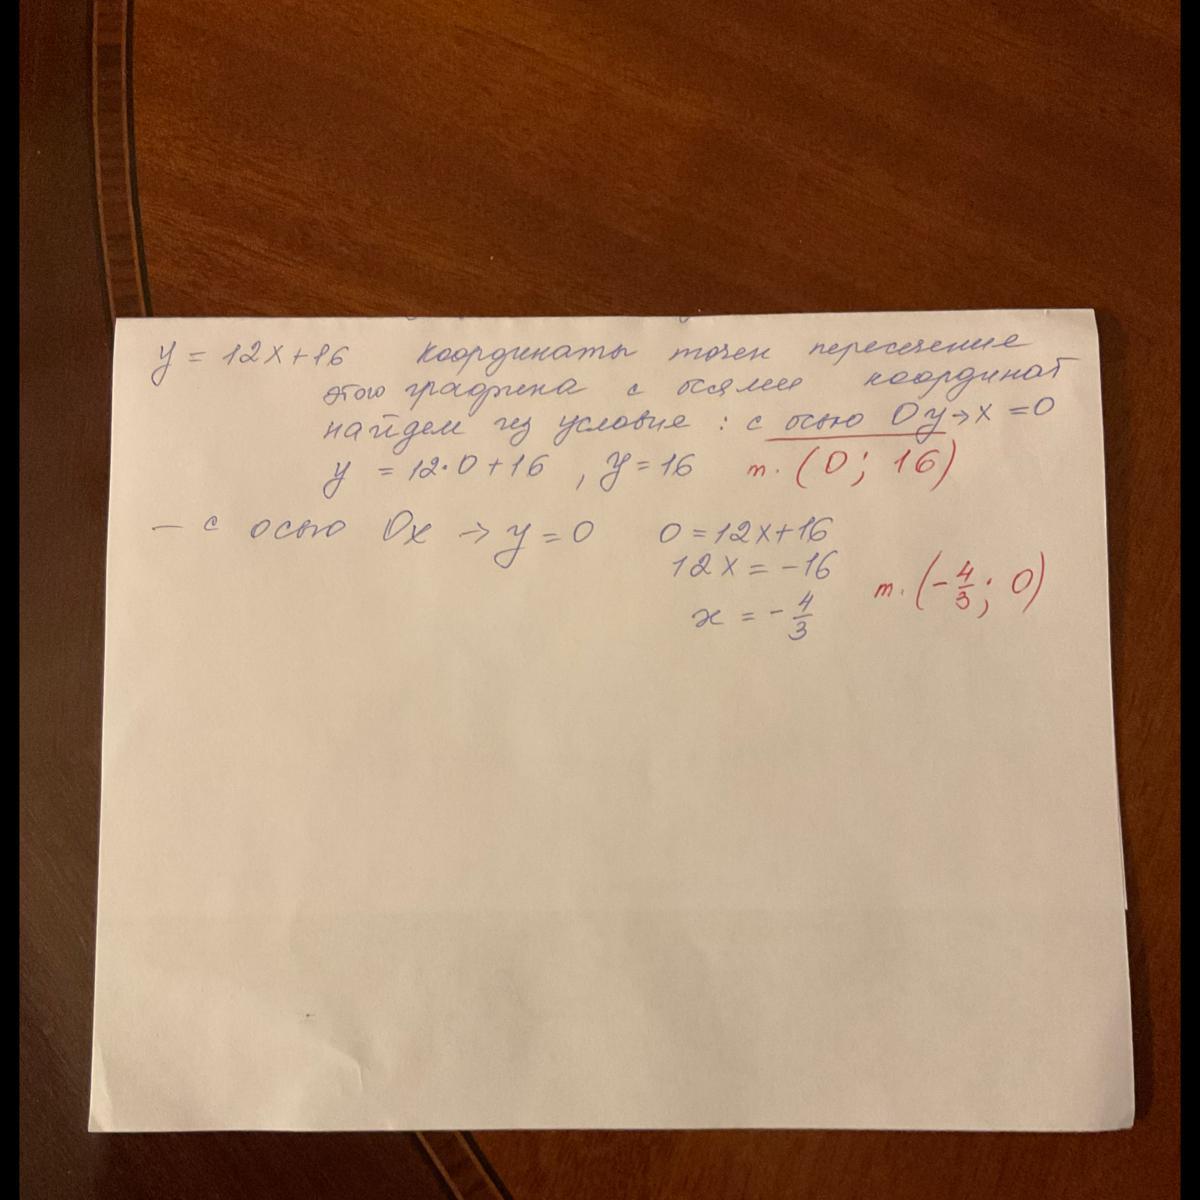 y = 12x+16 Координаты точек пересечение
этого графика с осями координат
найдем из условие : с осью Oy → x = 0
y = 12·0+16 , y = 16 т. (0; 16)
– с осью Ox → y = 0 0 = 12x+16
12x = -16
x = -4/3 т. (-4/3; 0)